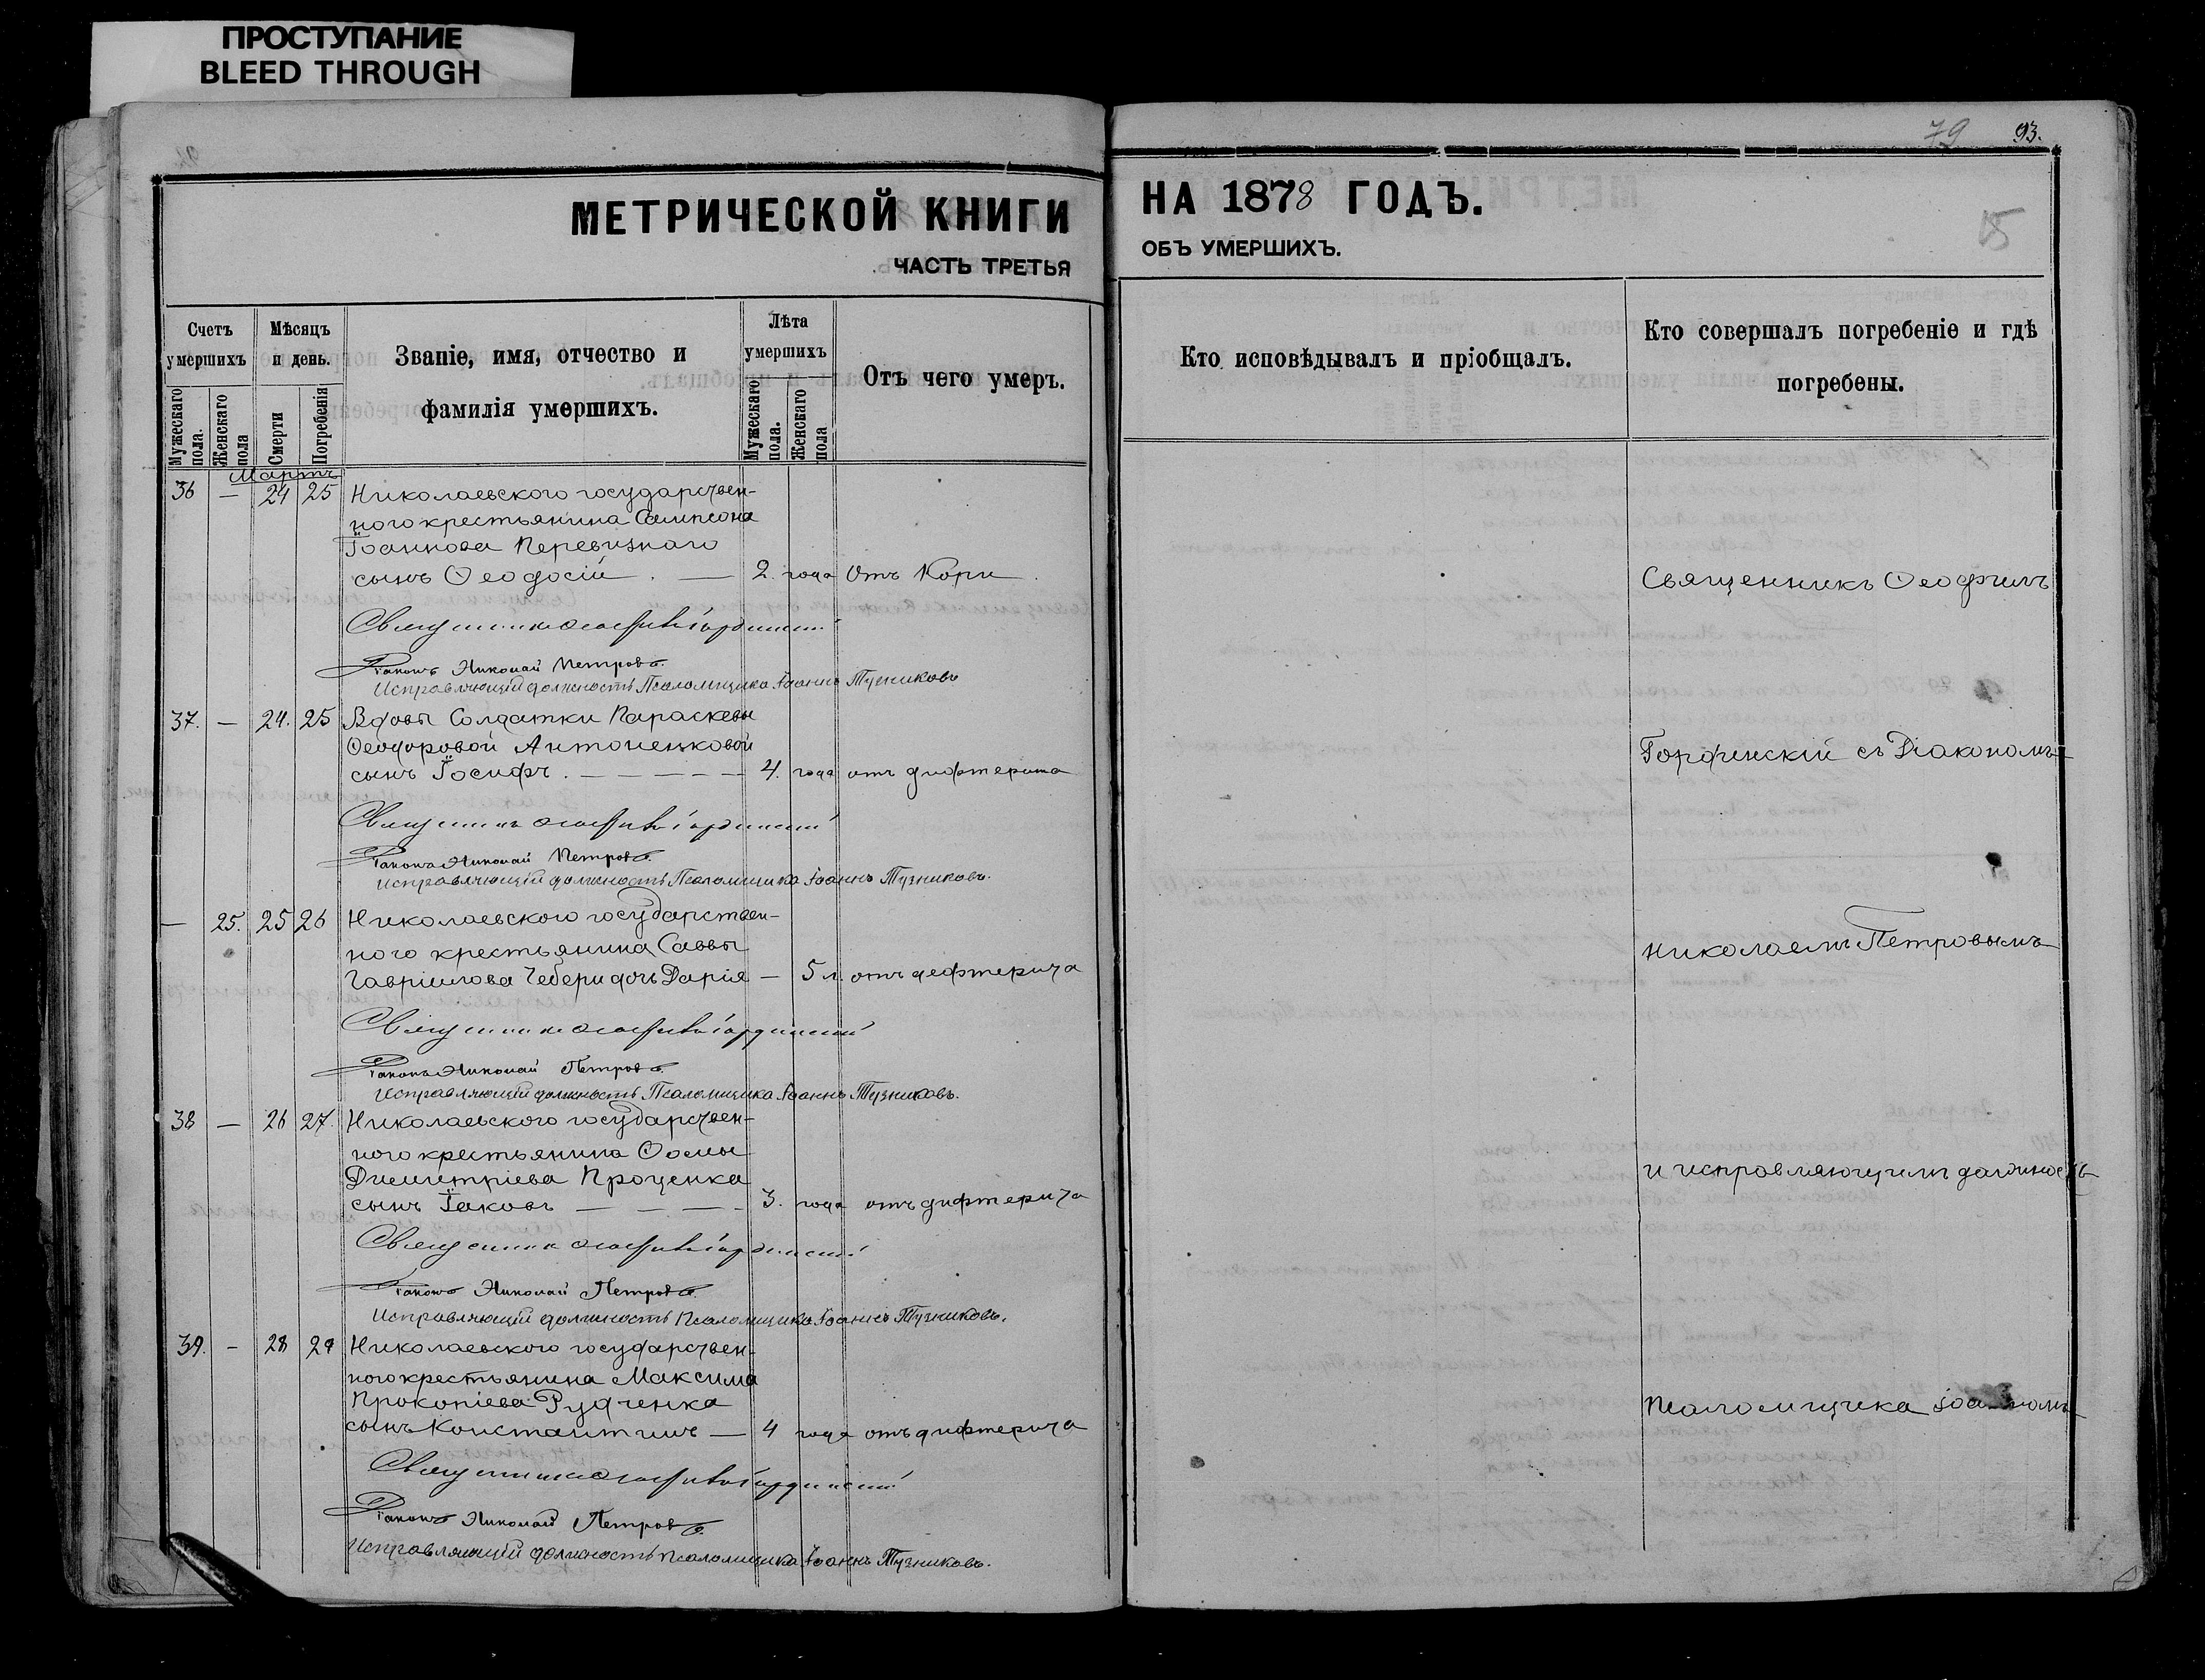 ПРОСТУПАНИЕ
BLEED THROUGH
МЕТРИЧЕСКОЙ КНИГИ
ЧАСТЬ ТРЕТЬЯ
Счетъ умершихъ
Мужескаго пола.
Женскаго пола
Мѣсяцъ и день.
Смерти
Погребенія
Званіе, имя, отчество и
фамилія умершихъ.
Лѣта умершихъ
Мужескаго пола.
Женскаго пола
Отъ чего умеръ.
Мартъ
36 — 24 25 Николаевского государствен-
ного крестьянина Сампсона
Іоаннова Перевизнаго
сынъ Ѳеодосій . — 2. года Отъ Кори.
Священникъ Ѳеофилъ Гордѣнскій
Діаконъ Николай Петровъ.
Исправляющій должность Псаломщика Іоаннъ Тузниковъ
37. — 24. 25 Вдовы Солдатки Параскевы
Ѳеодоровой Антоненковой
сынъ Іосифъ. — — — — — 4. года отъ дифтерита
Священникъ Ѳеофилъ Гордѣнскій
Діаконъ Николай Петровъ.
исправляющій должность Псаломщика Іоаннъ Тузниковъ.
— 25. 25 26 Николаевского государствен-
ного крестьянина Саввы
Гавріилова Чебери дочь Дарія — 5 л. отъ дефтерита
Священникъ Ѳеофилъ Гордѣнскій
Діаконъ Николай Петровъ.
Исправляющій должность Псаломщика Іоаннъ Тузниковъ.
38 — 26 27. Николаевского государствен-
ного крестьянина Ѳомы
Димитріева Проценка
сынъ Іаковъ — — — — 3. года отъ дифтерита
Священникъ Ѳеофилъ Гордѣнскій
Діаконъ Николай Петровъ.
Исправляющій должность Псаломщика Іоаннъ Тузниковъ.
39. — 28 29 Николаевского государствен-
ного крестьянина Максима
Прокопіева Рудченка
сынъ Константинъ — 4 года отъ дифтерита
Священникъ Ѳеофилъ Гордѣнскій
Діаконъ Николай Петровъ.
Исправляющій должность псаломщика Іоаннъ Тузниковъ.
79 93.
НА 1878 ГОДЪ.
ОБЪ УМЕРШИХЪ.
15
Кто исповѣдывалъ и пріобщалъ.
Кто совершалъ погребеніе и гдѣ
погребены.
Священникъ Ѳеофилъ
Гордѣнскій съ Діакономъ
Николаемъ Петровымъ
и исправляющимъ должность
Псаломщика Іоанномъ